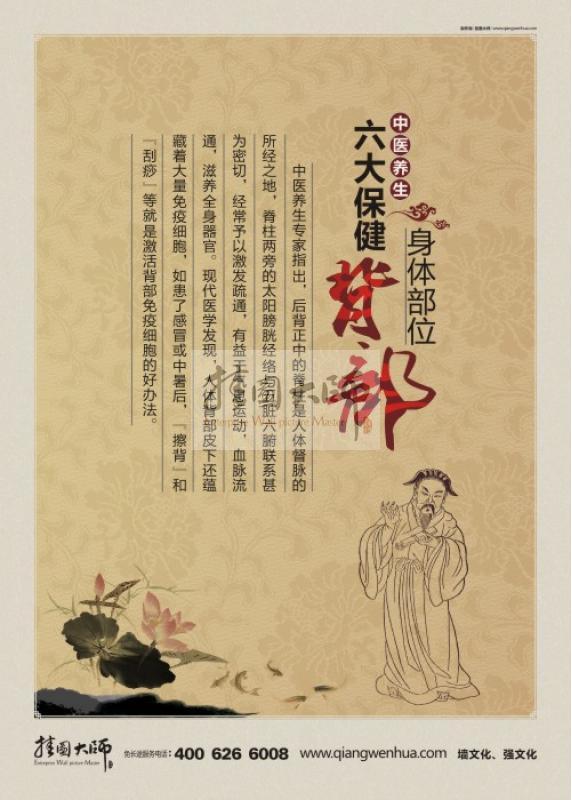 www.qiangwenhua.com
中医养生
身体部位
六大保健
背部
中医养生专家指出，后背正中的脊柱是人体督脉的
所经之地，脊柱两旁的太阳膀胱经络与五脏六腑联系甚
为密切，经常予以激发疏通，有益于气息运动，血脉流
通，滋养全身器官。现代医学发现，人体背部皮下还蕴
藏着大量免疫细胞，如患了感冒或中暑后，『擦背』和
『刮痧』等就是激活背部免疫细胞的好办法。
挂图大师
Enterprise Wall picture Master
挂图大师
Enterprise Wall picture Master
免长途服务电话：400 626 6008 www.qiangwenhua.com 墙文化、强文化